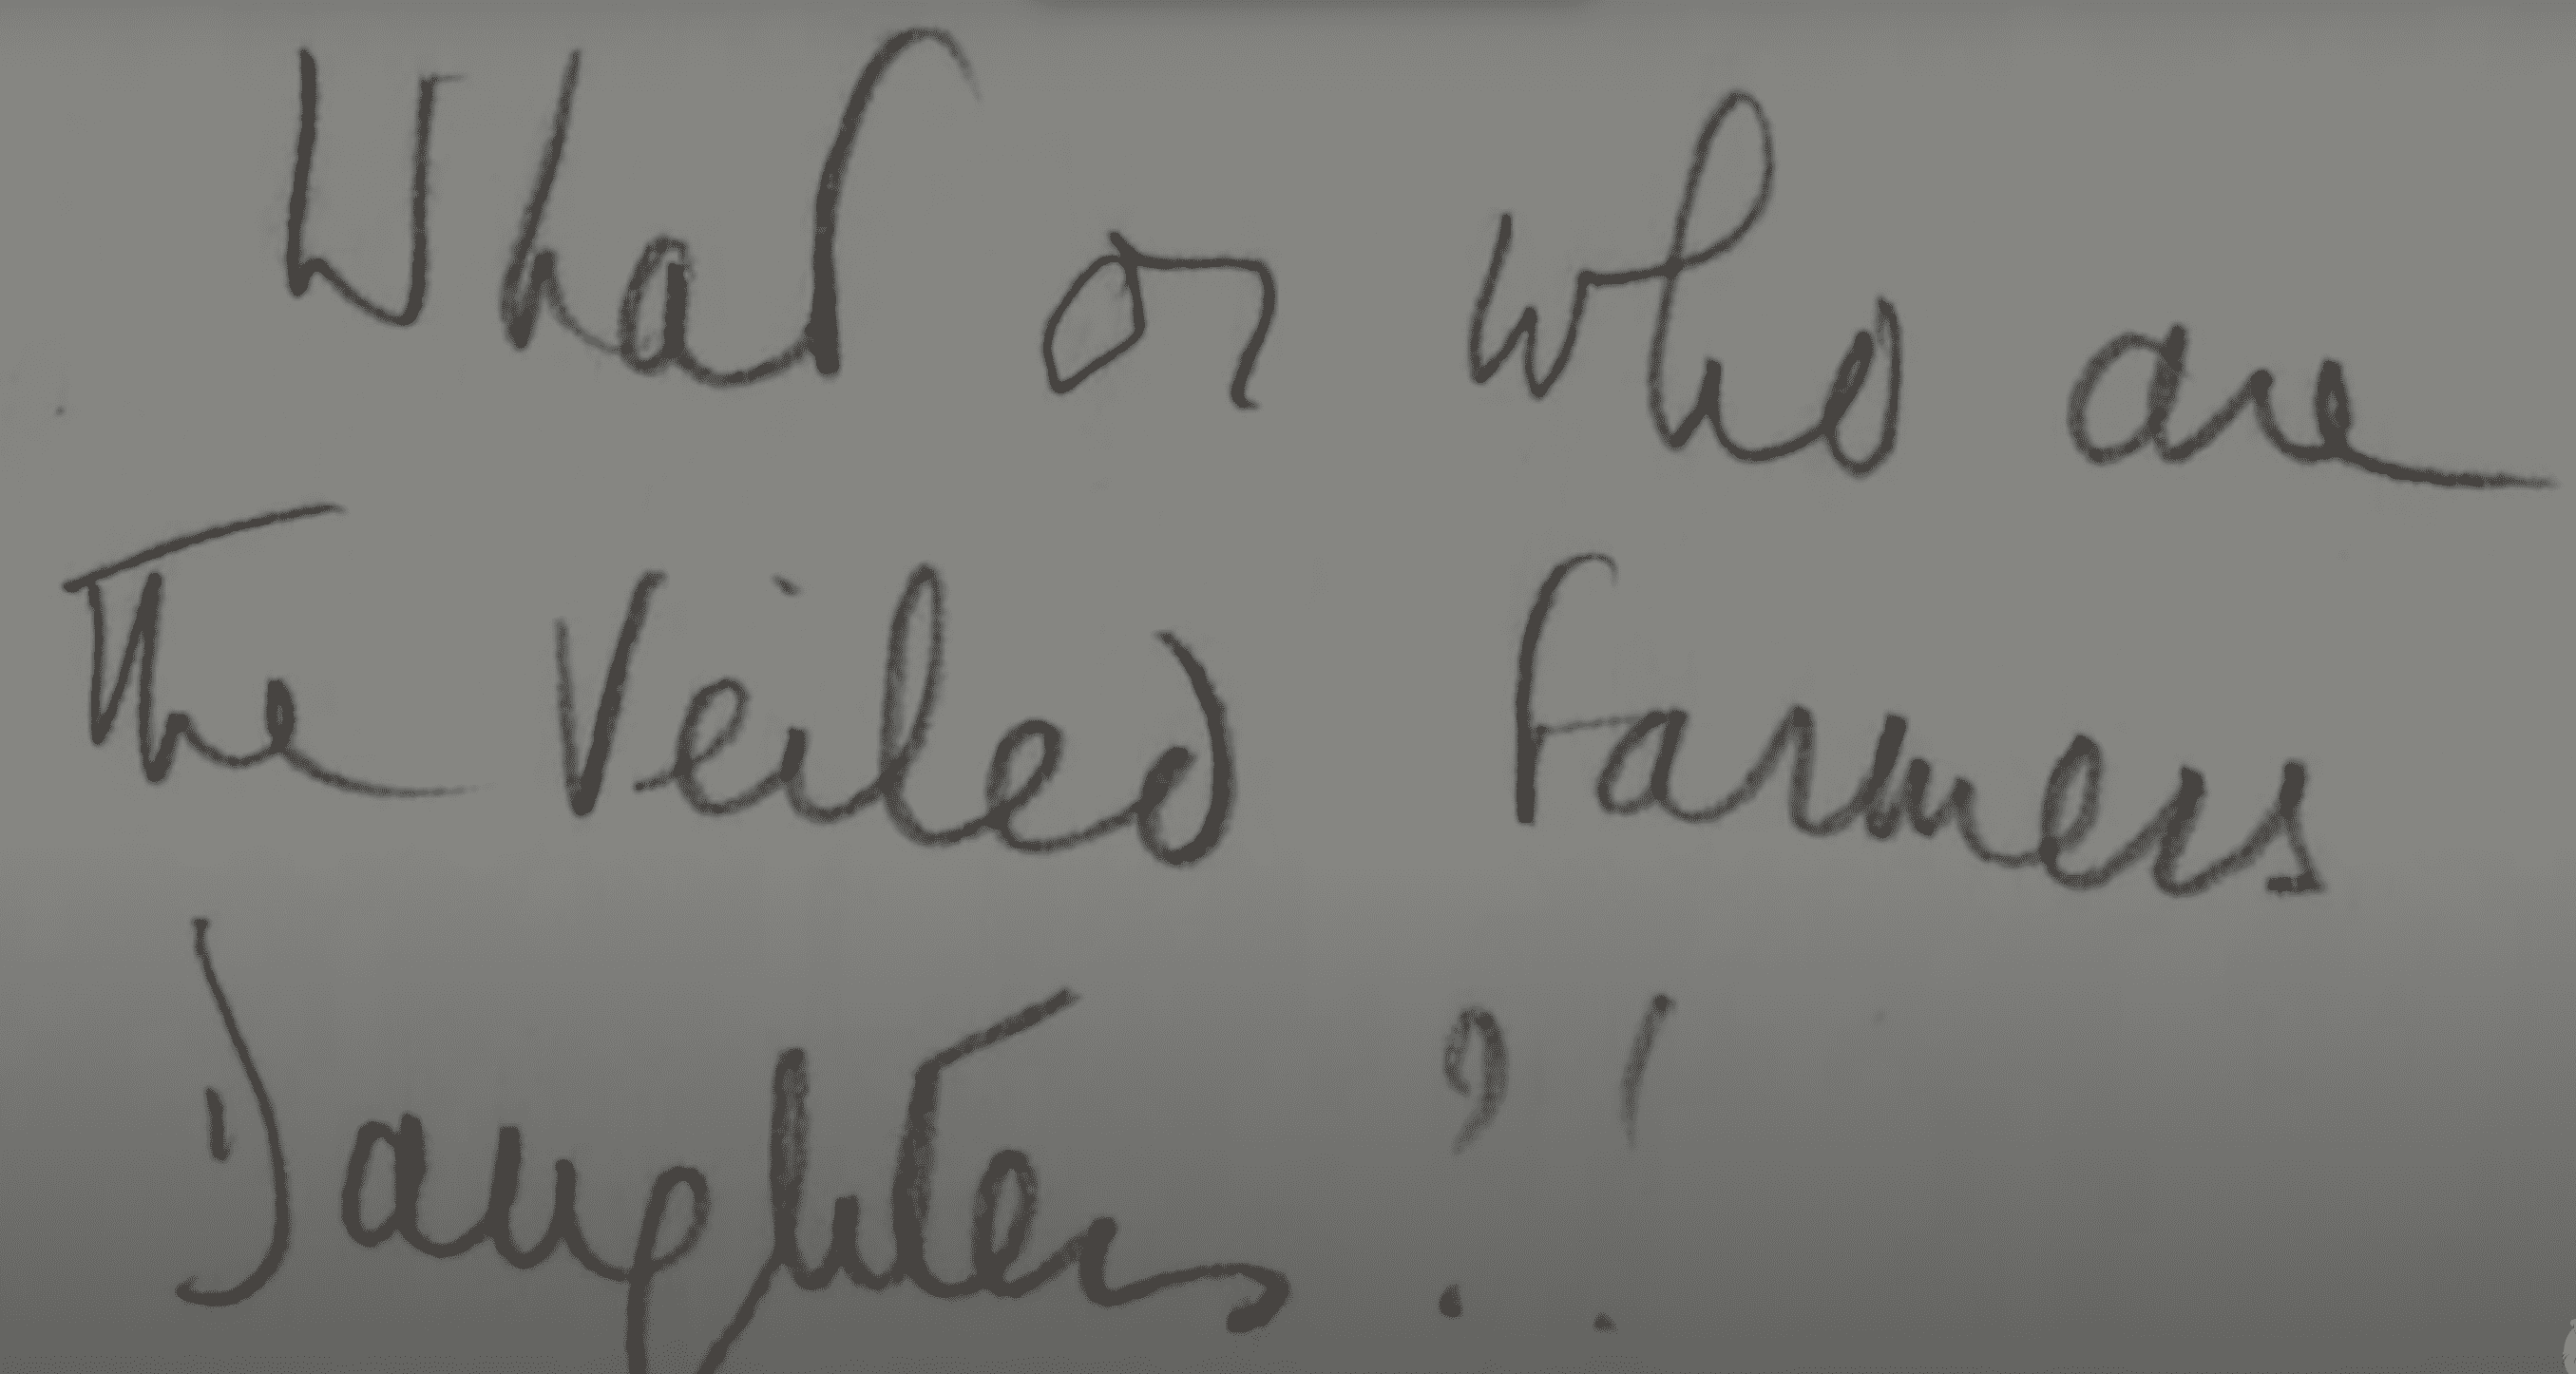 What or who are
The Veiled Farmers
Daughters ?!